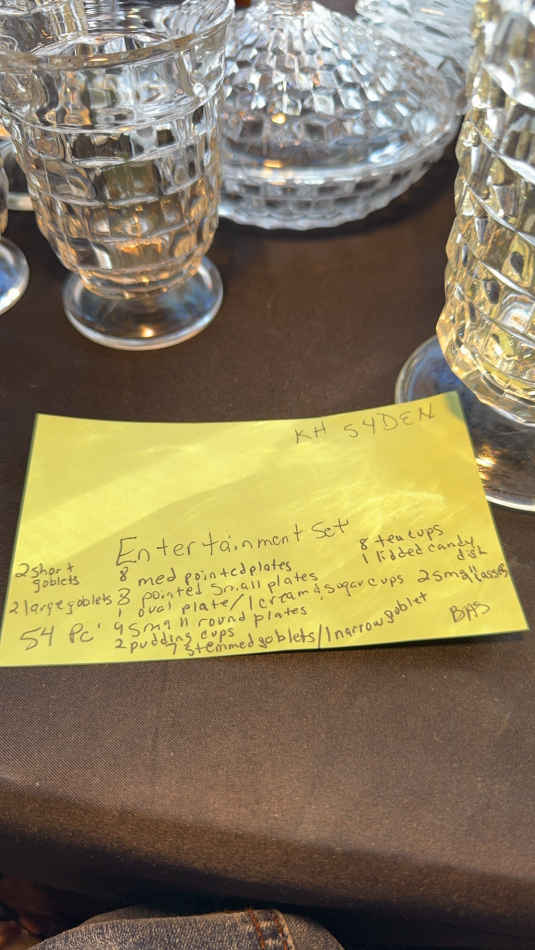 KH 54DEN
Entertainment Set
2 short goblets
8 med pointed plates
8 tea cups
2 large goblets
8 pointed small plates
1 lidded candy dish
1 oval plate/1 cream & sugar cups
2 small
54 Pc'
4 small round plates
2 pudding cups
7 stemmed goblets/1 narrow goblet
BAS